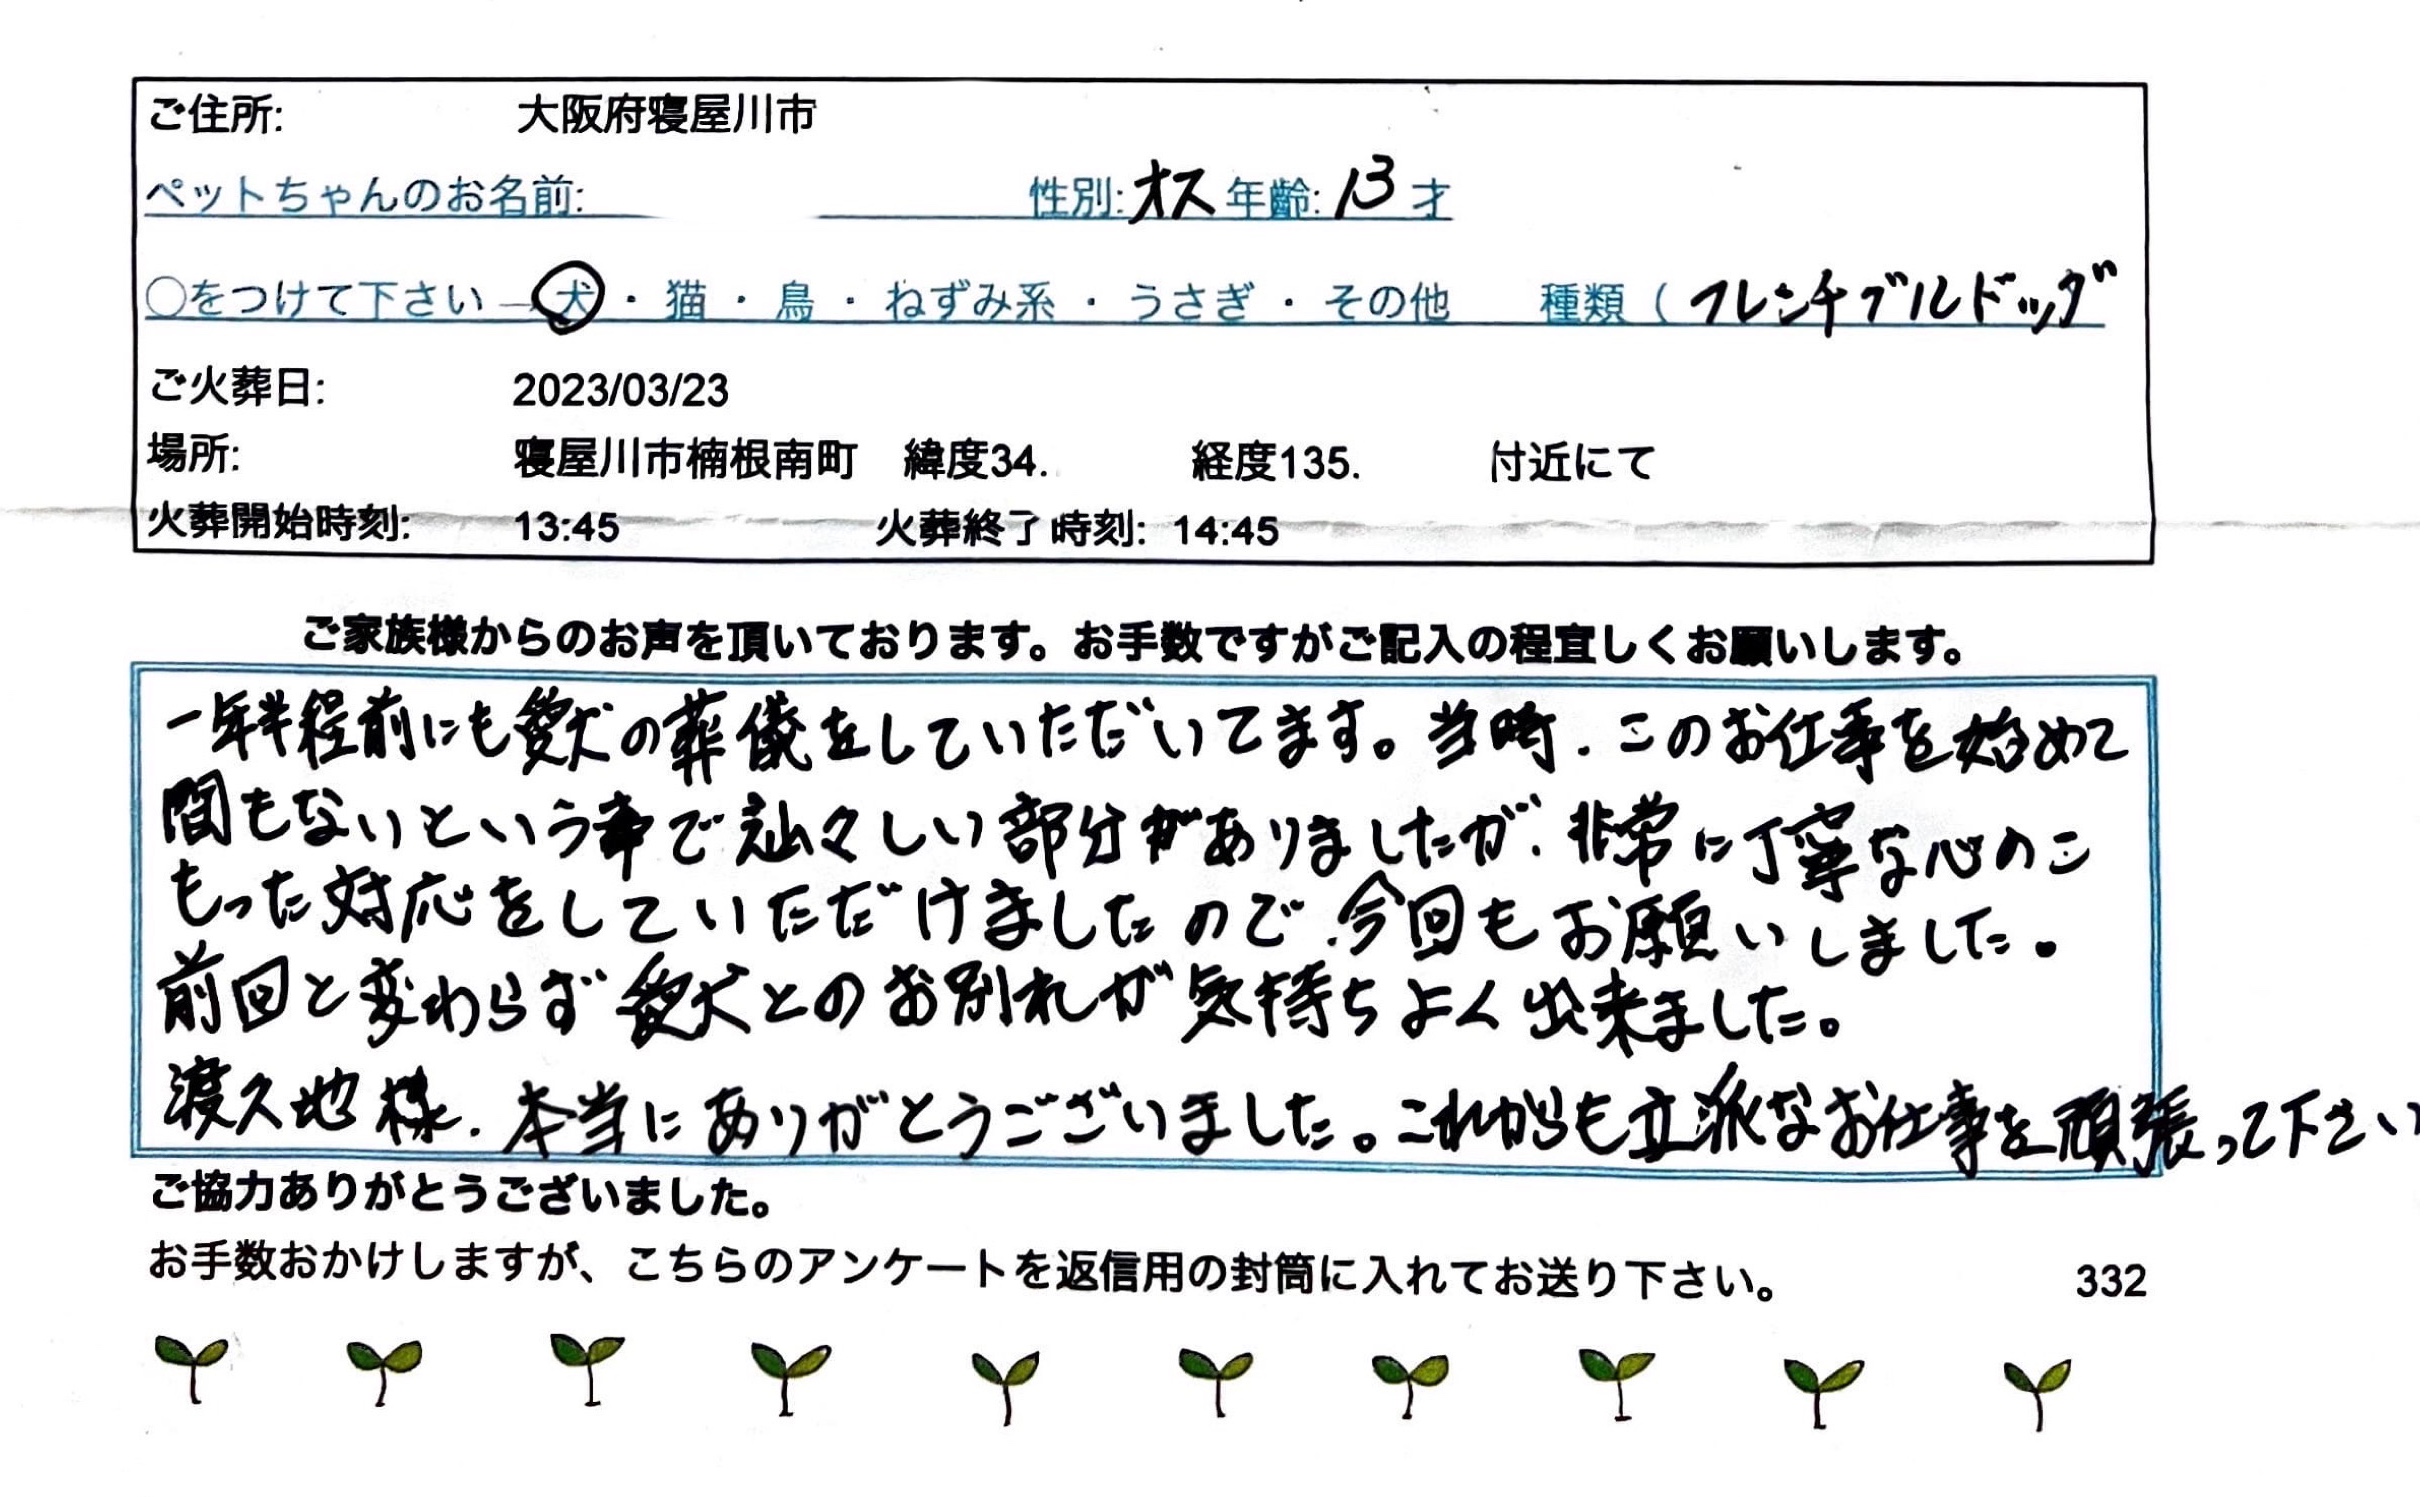 ご住所: 大阪府寝屋川市
ペットちゃんのお名前: 性別:オス 年齢:13才
○をつけて下さい → 犬・猫・鳥・ねずみ系・うさぎ・その他 種類(フレンチブルドッグ
ご火葬日: 2023/03/23
場所: 寝屋川市楠根南町 緯度34. 経度135. 付近にて
火葬開始時刻: 13:45 火葬終了時刻: 14:45
ご家族様からのお声を頂いております。お手数ですがご記入の程宜しくお願いします。
一年半程前にも愛犬の葬儀をしていただいてます。当時、このお仕事を始めて
間もないという事で初々しい部分がありましたが、非常に丁寧な心のこ
もった対応をしていただけましたので、今回もお願いしました。
前回と変わらず愛犬とのお別れが気持ちよく出来ました。
渡久地様、本当にありがとうございました。これからも立派なお仕事を頑張って下さい
ご協力ありがとうございました。
お手数おかけしますが、こちらのアンケートを返信用の封筒に入れてお送り下さい。 332